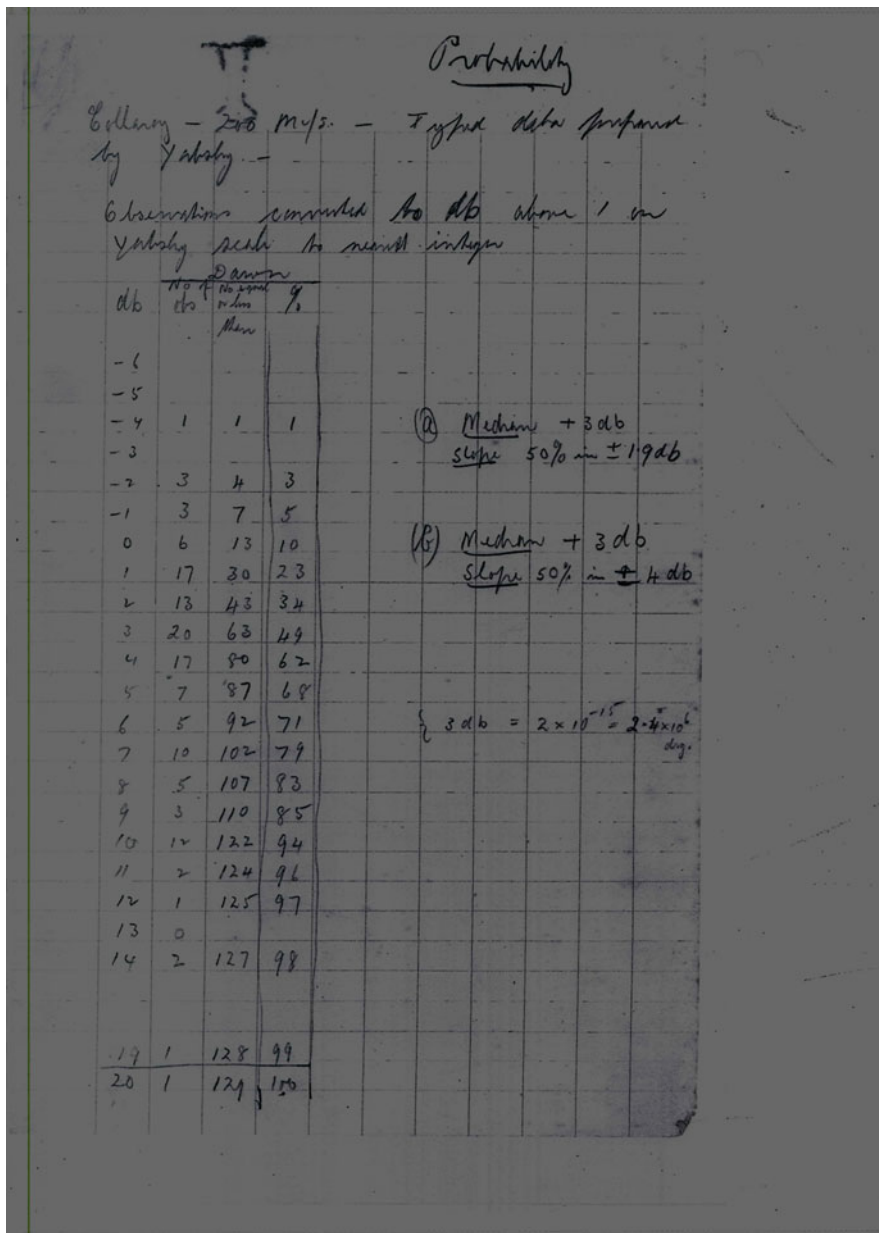 Probability
Collaroy - 200 Mc/s. - Typed data prepared
by Yabsley -
Observations converted to db above 1 on
Yabsley scale to nearest integer
Dawn
db No of obs No equal or less than %
-6
-5
-4 1 1 1
-3
-2 3 4 3
-1 3 7 5
0 6 13 10
1 17 30 23
2 13 43 34
3 20 63 49
4 17 80 62
5 7 87 68
6 5 92 71
7 10 102 79
8 5 107 83
9 3 110 85
10 12 122 94
11 2 124 96
12 1 125 97
13 0
14 2 127 98
19 1 128 99
20 1 129 100
(a) Median + 3 db
Slope 50% in ± 1.9 db
(b) Median + 3 db
Slope 50% in ± 4 db
{ 3 db = 2 × 10^-15 =
deg.